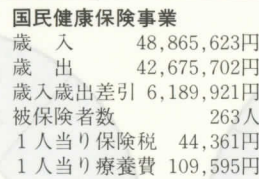 国民健康保険事業
歳入 48,865,623円
歳出 42,675,702円
歳入歳出差引 6,189,921円
被保険者数 263人
1人当り保険税 44,361円
1人当り療養費 109,595円